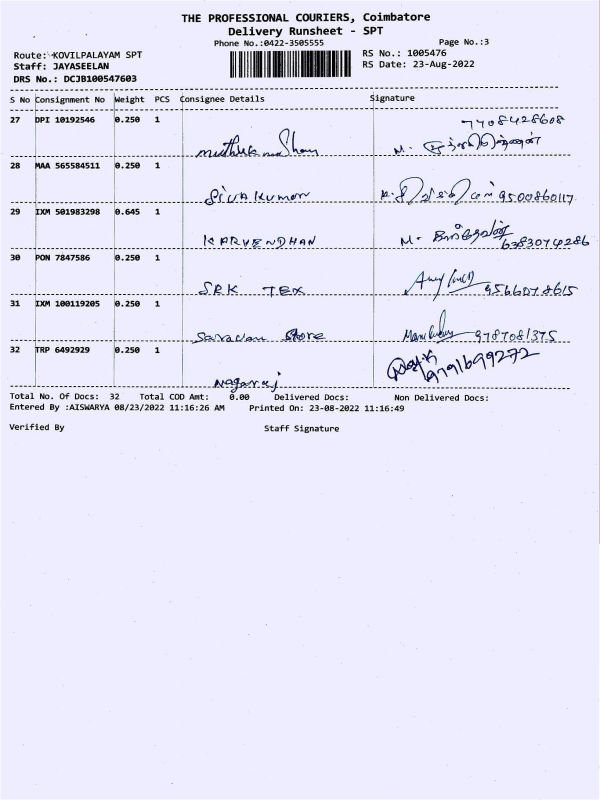 THE PROFESSIONAL COURIERS, Coimbatore
Delivery Runsheet - SPT
Phone No.:0422-3505555 Page No.:3
Route: KOVILPALAYAM SPT RS No.: 1005476
Staff: JAYASEELAN RS Date: 23-Aug-2022
DRS No.: DCJB100547603
S No Consignment No Weight PCS Consignee Details Signature
27 DPI 10192546 0.250 1 7708428608
M.
28 MAA 565584511 0.250 1
Siva kumar 9500860117
29 IXM 501983298 0.645 1
KARVENDHAN M. 6383074286
30 PON 7847586 0.250 1
SRK TEX 9566078615
31 IXM 100119205 0.250 1
Saravan Store 9787081375
32 TRP 6492929 0.250 1
9791699272
Nagaraj
Total No. Of Docs: 32 Total COD Amt: 0.00 Delivered Docs: Non Delivered Docs:
Entered By :AISWARYA 08/23/2022 11:16:26 AM Printed On: 23-08-2022 11:16:49
Verified By Staff Signature